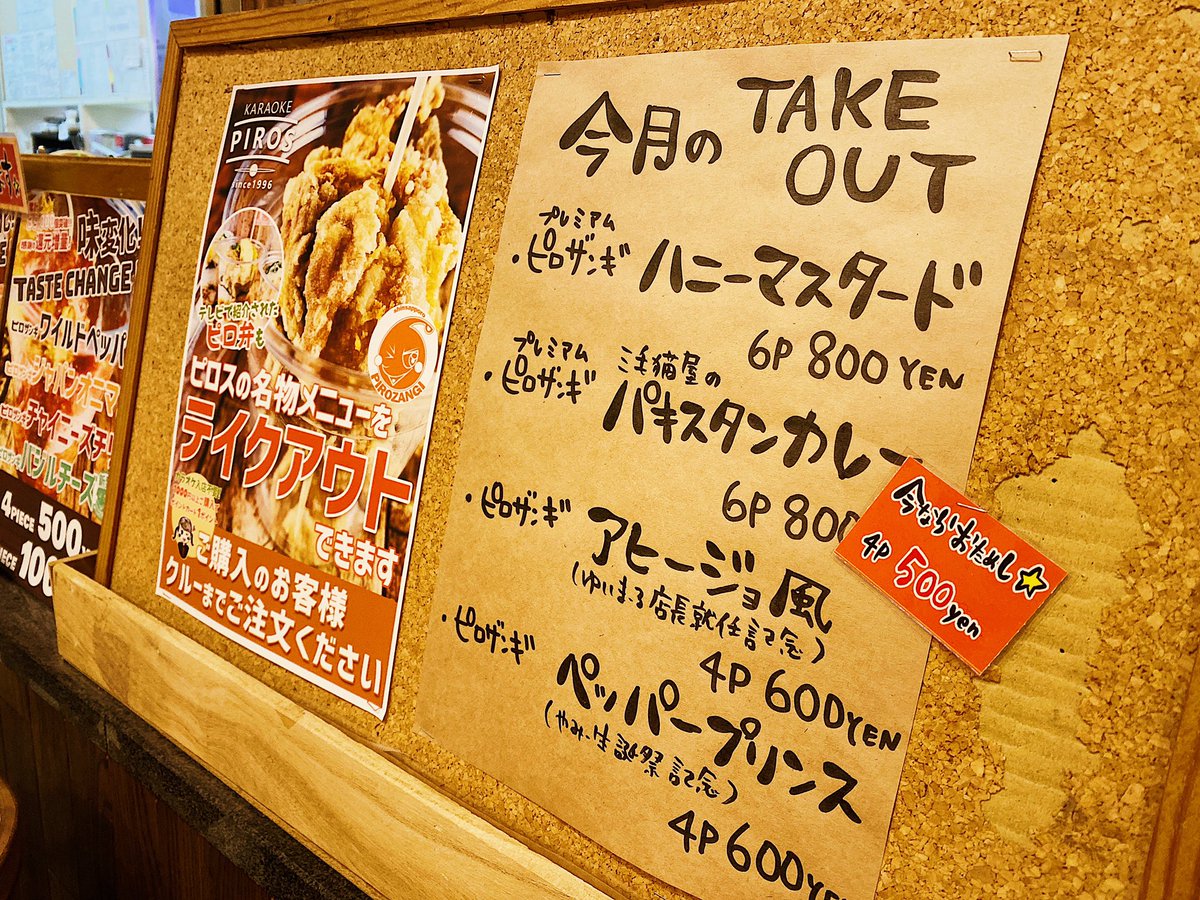 味変化
TASTE CHANGE
ピロザンギ ワイルドペッパ
ピロザンギ ジャパンオニマ
ピロザンギ チャイニーズチ
ピロザンギ バジルチーズ
4PIECE 500
PIECE 100
KARAOKE
PIROS
since1996
テレビで紹介された
ピロ弁も
PIROZANGI
ピロスの名物メニューを
テイクアウト
できます
ご購入のお客様
クルーまでご注文ください
今月の TAKE OUT
プレミアム
・ピロザンギ ハニーマスタード
6P 800YEN
プレミアム
・ピロザンギ 三毛猫屋の
パキスタンカレー
6P 800
今ならおためし☆
4P 500yen
・ピロザンギ アヒージョ風
(ゆいまーる店長就任記念)
4P 600YEN
・ピロザンギ ペッパープリンス
(やみー生誕祭記念)
4P 600YEN